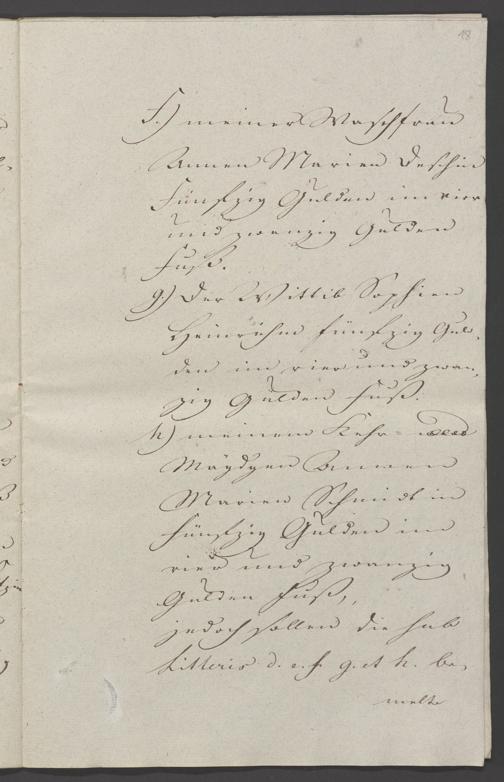 18
f.) meiner Waschfrau
Annen Marien Deschin
Fünfzig Gulden im vier
und zwanzig Gulden
Fuß.
g.) Der Wittib Sophien
fünfzig Gul-
den im vier und zwan-
zig Gulden Fuß.
h.) meinem Kehr-
Mäydgen Annen
Marien Schmidtin
Fünfzig Gulden im
vier und zwanzig
Gulden Fuß,
jedoch sollen die sub
Litteris d. e. f. g. et h. be-
melte